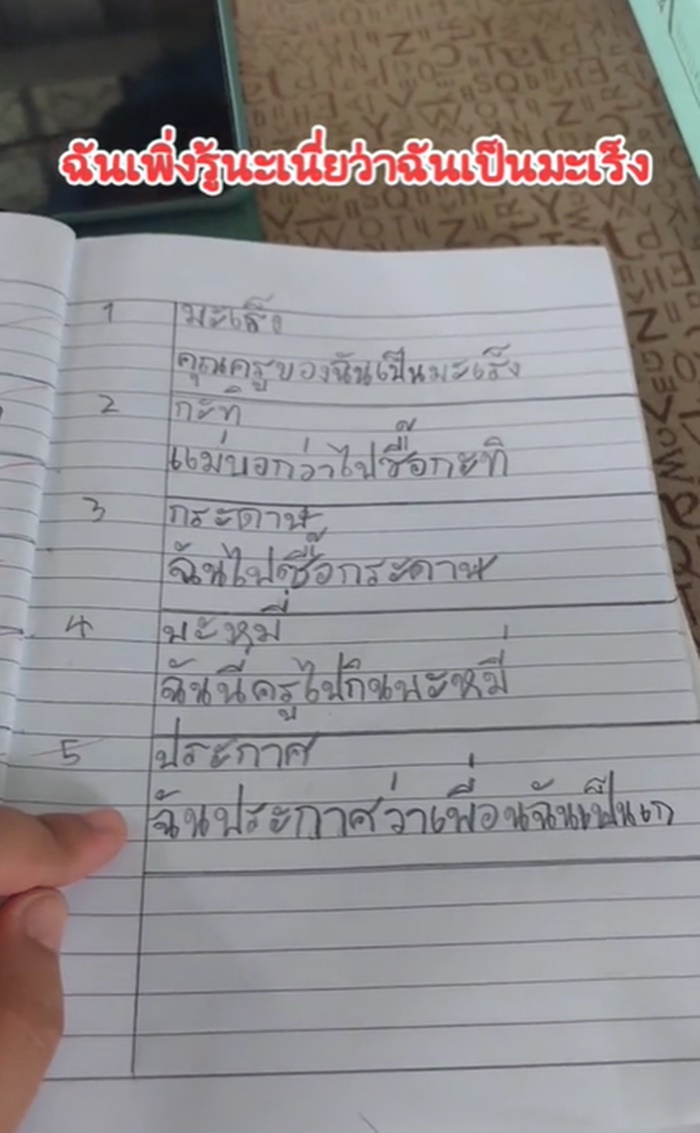 ฉันเพิ่งรู้นะเนี่ยว่าฉันเป็นมะเร็ง
1 มะเร็ง
คุณครูของฉันเป็นมะเร็ง
2 กะทิ
แม่บอกว่าไปซื้อกะทิ
3 กระดาษ
ฉันไปซื้อกระดาษ
4 บะหมี่
ฉันนี่ครูไปกินบะหมี่
5 ประกาศ
ฉันประกาศว่าเพื่อนฉันเป็นเก